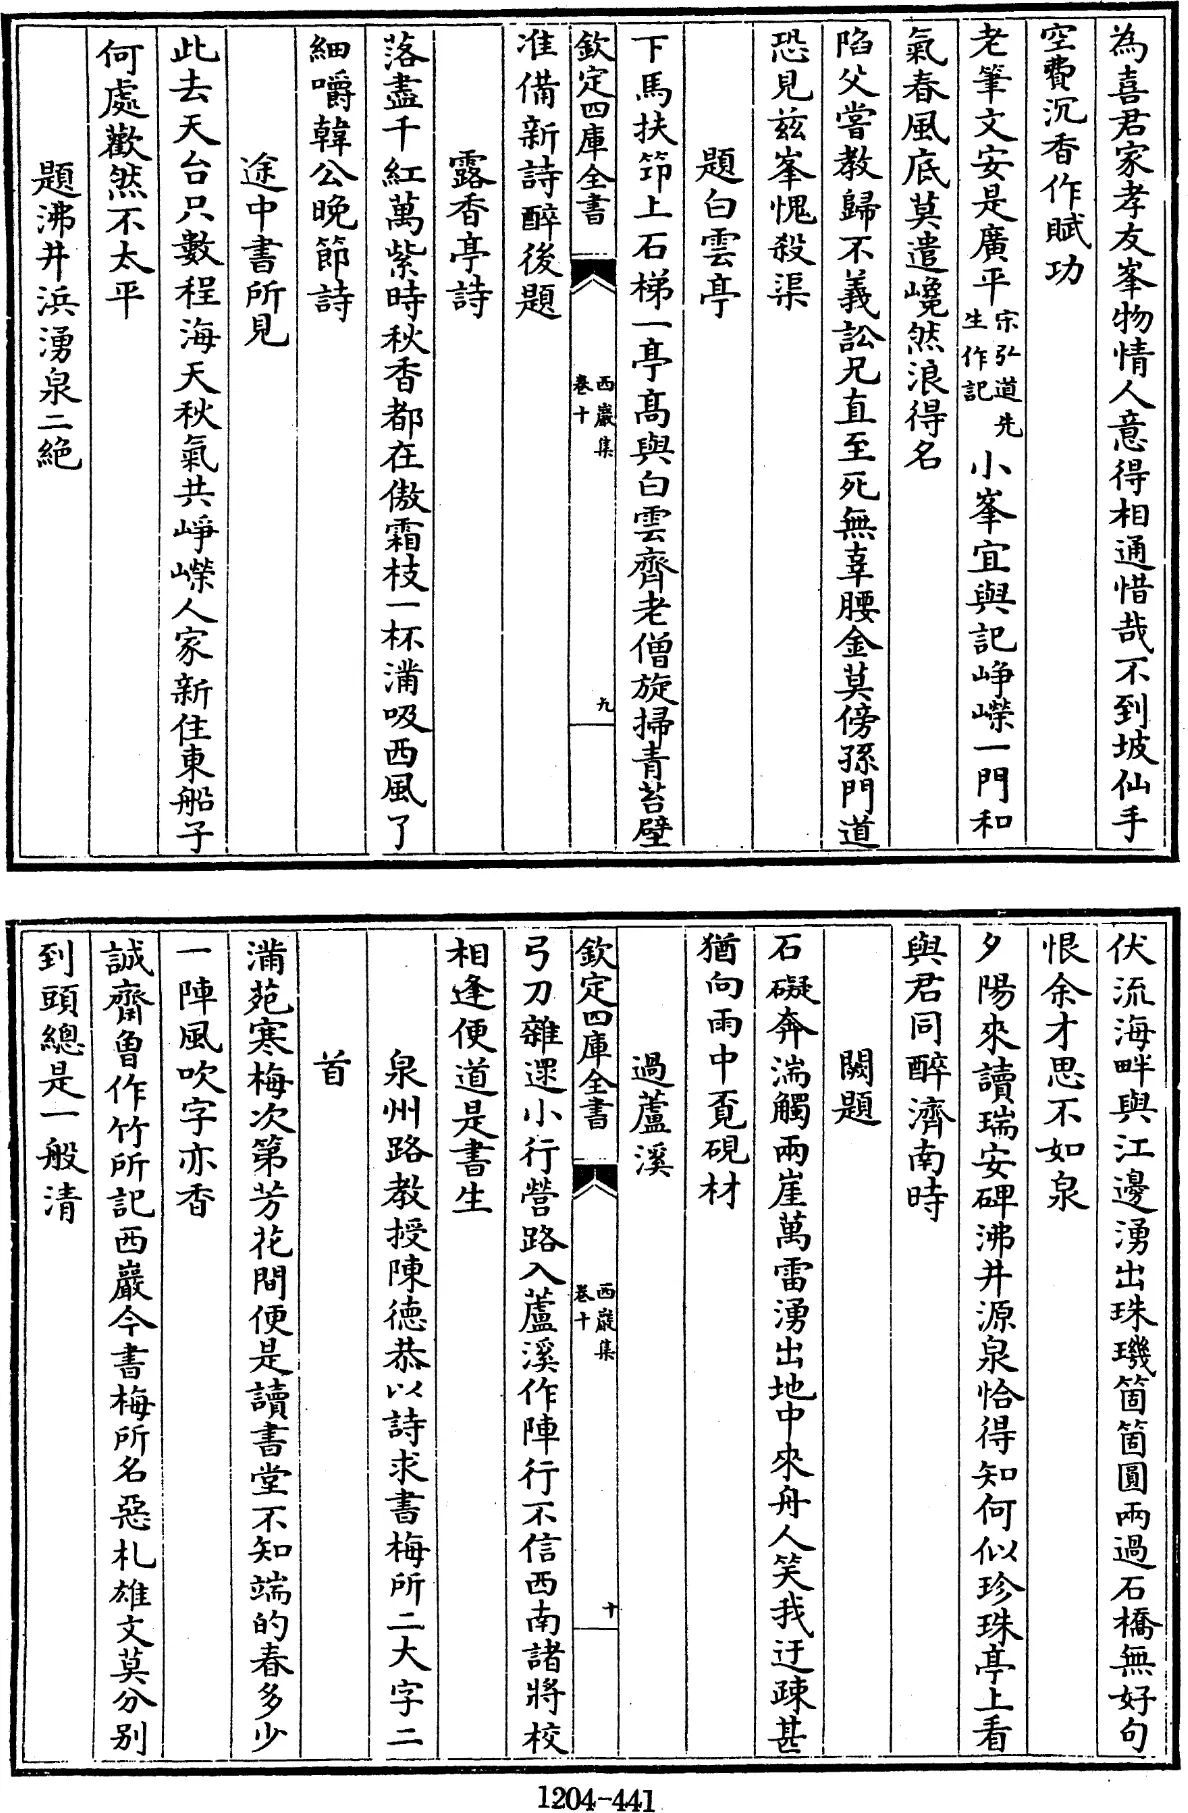 為喜君家孝友峯物情人意得相通惜哉不到坡仙手
空費沉香作賦功
老筆文安是廣平宋弘道先生作記小峯宜與記崢嶸一門和
氣春風底莫遣巉然浪得名
陷父嘗教歸不義訟兄直至死無辜腰金莫傍孫門道
恐見茲峯愧殺渠
題白雲亭
下馬扶筇上石梯一亭髙與白雲齊老僧旋掃青苔壁
欽定四庫全書
西巖集
卷十
九
准備新詩醉後題
露香亭詩
落盡千紅萬紫時秋香都在傲霜枝一杯滿吸西風了
細嚼韓公晚節詩
途中書所見
此去天台只數程海天秋氣共崢嶸人家新住東船子
何處歡然不太平
題沸井浜湧泉二絶
伏流海畔與江邊湧出珠璣箇箇圓兩過石橋無好句
恨余才思不如泉
夕陽來讀瑞安碑沸井源泉恰得知何似珍珠亭上看
與君同醉濟南時
闕題
石礙奔湍觸兩崖萬雷湧出地中來舟人笑我迂疎甚
猶向雨中覓硯材
過蘆溪
欽定四庫全書
西巖集
卷十
十
弓刀雜遝小行營路入蘆溪作陣行不信西南諸將校
相逢便道是書生
泉州路教授陳德恭以詩求書梅所二大字二
首
滿苑寒梅次第芳花間便是讀書堂不知端的春多少
一陣風吹字亦香
誠齋曾作竹所記西巖今書梅所名惡札雄文莫分别
到頭總是一般清
1204-441